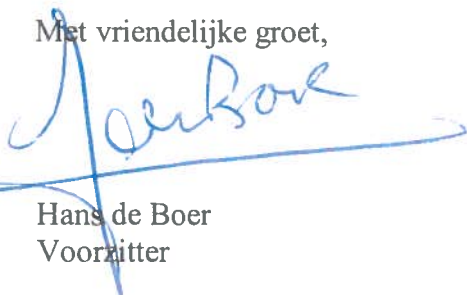 Met vriendelijke groet,
Hans de Boer
Voorzitter